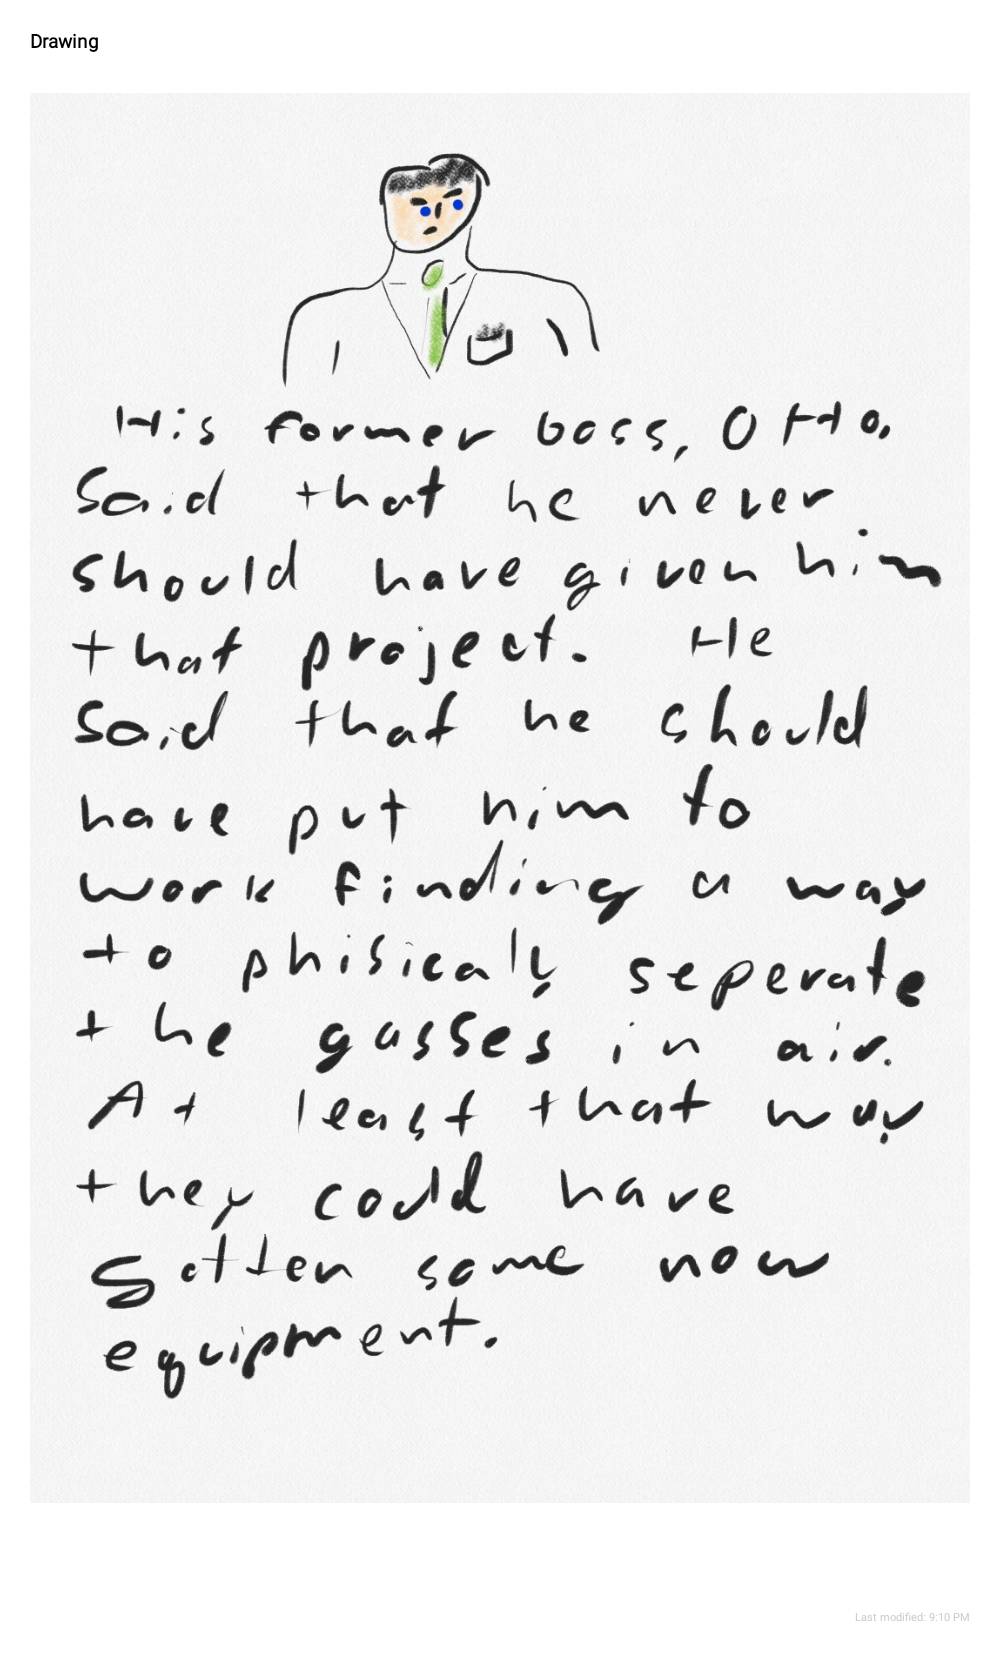 Drawing
His former boss, Otto,
Said that he never
should have given him
that project. He
Said that he should
have put him to
work finding a way
to phisicaly seperate
the gasses in air.
At least that way
they could have
gotten some now
equipment.
Last modified: 9:10 PM